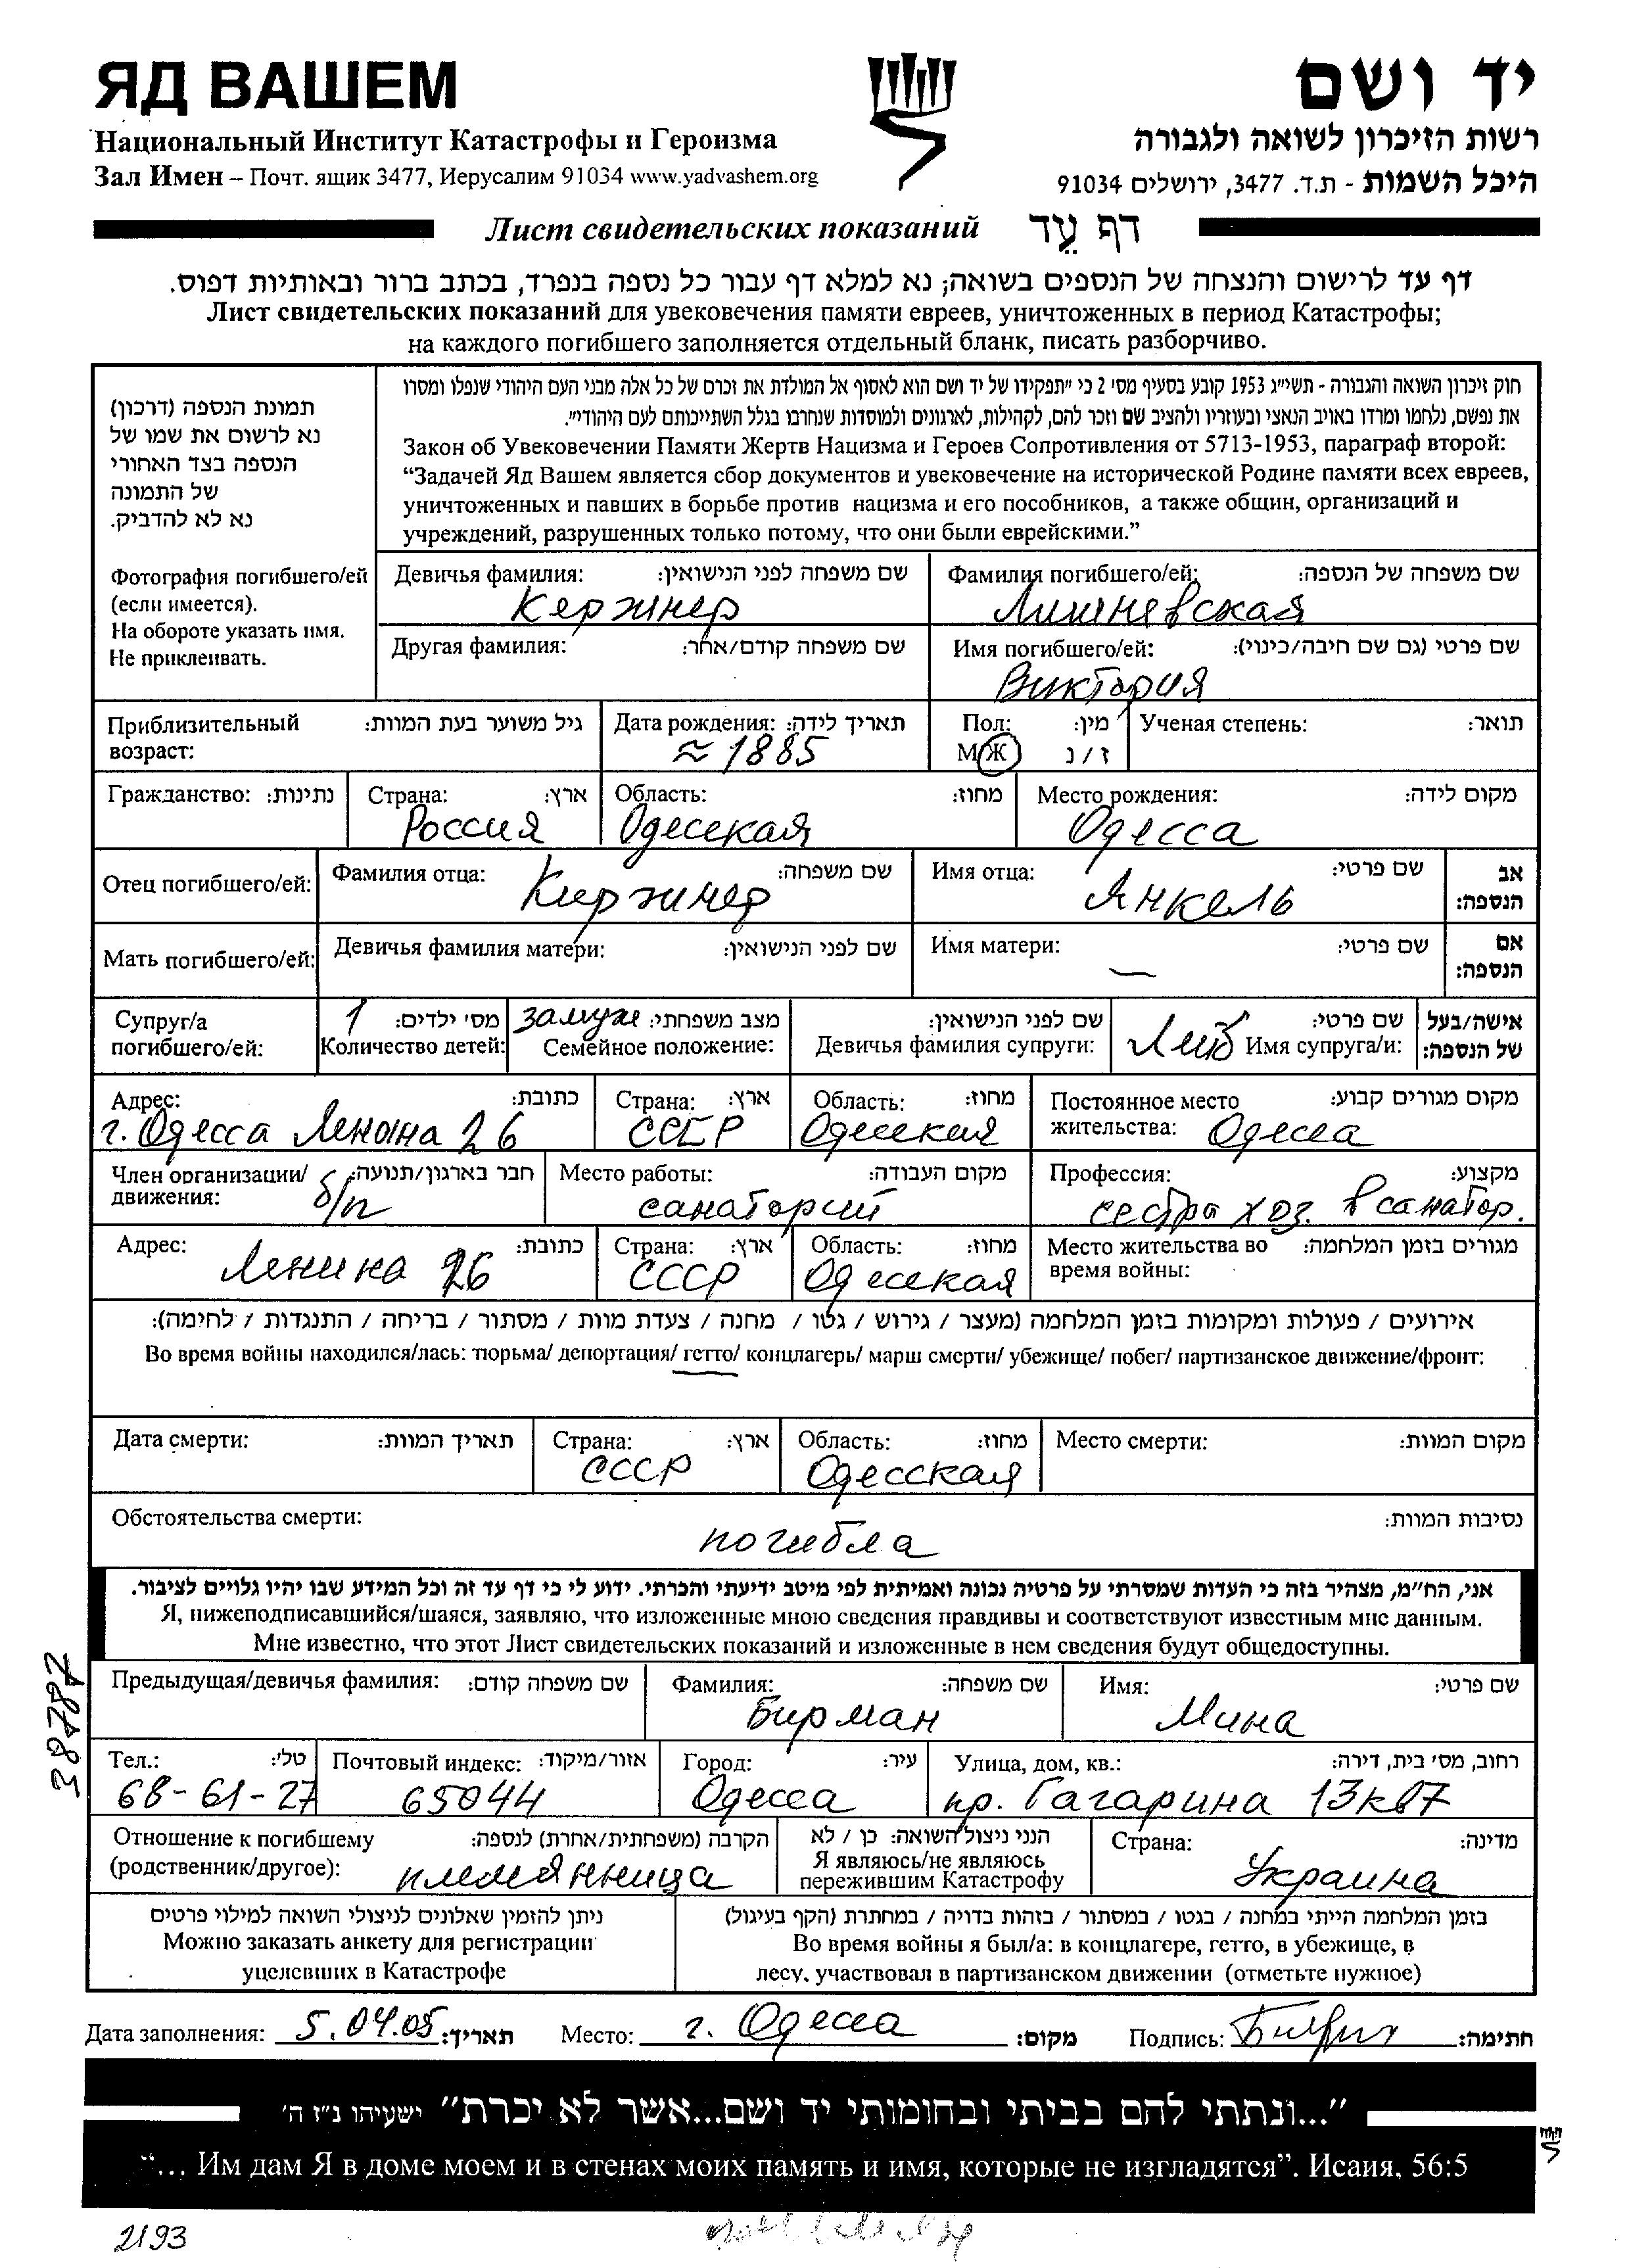 ЯД ВАШЕМ
יד ושם
Национальный Институт Катастрофы и Героизма
רשות הזיכרון לשואה ולגבורה
Зал Имен – Почт. ящик 3477, Иерусалим 91034 www.yadvashem.org
היכל השמות - ת.ד. 3477, ירושלים 91034
Лист свидетельских показаний דף עֵד
דף עד לרישום והנצחה של הנספים בשואה; נא למלא דף עבור כל נספה בנפרד, בכתב ברור ובאותיות דפוס.
Лист свидетельских показаний для увековечения памяти евреев, уничтоженных в период Катастрофы;
на каждого погибшего заполняется отдельный бланк, писать разборчиво.
תמונת הנספה (דרכון)
נא לרשום את שמו של
הנספה בצד האחורי
של התמונה
נא לא להדביק.
Фотография погибшего/ей
(если имеется).
На обороте указать имя.
Не приклеивать.
חוק זיכרון השואה והגבורה - תשי״ג 1953 קובע בסעיף מס׳ 2 כי ״תפקידו של יד ושם הוא לאסוף אל המולדת את זכרם של כל אלה מבני העם היהודי שנפלו ומסרו
את נפשם, נלחמו ומרדו באויב הנאצי ובעוזריו ולהציב שם וזכר להם, לקהילות, לארגונים ולמוסדות שנחרבו בגלל השתייכותם לעם היהודי״.
Закон об Увековечении Памяти Жертв Нацизма и Героев Сопротивления от 5713-1953, параграф второй:
“Задачей Яд Вашем является сбор документов и увековечение на исторической Родине памяти всех евреев,
уничтоженных и павших в борьбе против нацизма и его пособников, а также общин, организаций и
учреждений, разрушенных только потому, что они были еврейскими.”
Девичья фамилия: שם משפחה לפני הנישואין: Фамилия погибшего/ей: שם משפחה של הנספה:
Кержнер Лишневская
Другая фамилия: שם משפחה קודם/אחר: Имя погибшего/ей: שם פרטי (גם שם חיבה/כינוי):
Виктория
Приблизительный возраст: גיל משוער בעת המוות: Дата рождения: תאריך לידה: Пол: מין: Ученая степень: תואר:
≈ 1885 М Ж ז / נ
Гражданство: נתינות: Страна: ארץ: Область: מחוז: Место рождения: מקום לידה:
Россия Одесская Одесса
Отец погибшего/ей: Фамилия отца: שם משפחה: Имя отца: שם פרטי: אב הנספה:
Киржнер Янкель
Мать погибшего/ей: Девичья фамилия матери: שם לפני הנישואין: Имя матери: שם פרטי: אם הנספה:
—
Супруг/а погибшего/ей: 1 מס׳ ילדים: замуж מצב משפחתי: שם לפני הנישואין: שם פרטי: אישה/בעל של הנספה:
Количество детей: Семейное положение: Девичья фамилия супруги: Лейб Имя супруга/и:
Адрес: כתובת: Страна: ארץ: Область: מחוז: Постоянное место жительства: מקום מגורים קבוע:
г. Одесса Ленина 26 СССР Одесская Одесса
Член организации/движения: חבר בארגון/תנועה: Место работы: מקום העבודה: Профессия: מקצוע:
б/п санаторий сестра хоз. в санатор.
Адрес: כתובת: Страна: ארץ: Область: מחוז: Место жительства во время войны: מגורים בזמן המלחמה:
Ленина 26 СССР Одесская
אירועים / פעולות ומקומות בזמן המלחמה (מעצר / גירוש / גטו / מחנה / צעדת מוות / מסתור / בריחה / התנגדות / לחימה):
Во время войны находился/лась: тюрьма/ депортация/ гетто/ концлагерь/ марш смерти/ убежище/ побег/ партизанское движение/фронт:
Дата смерти: תאריך המוות: Страна: ארץ: Область: מחוז: Место смерти: מקום המוות:
СССР Одесская
Обстоятельства смерти: נסיבות המוות:
погибла
אני, הח״מ, מצהיר בזה כי העדות שמסרתי על פרטיה נכונה ואמיתית לפי מיטב ידיעתי והכרתי. ידוע לי כי דף עד זה וכל המידע שבו יהיו גלויים לציבור.
Я, нижеподписавшийся/шаяся, заявляю, что изложенные мною сведения правдивы и соответствуют известным мне данным.
Мне известно, что этот Лист свидетельских показаний и изложенные в нем сведения будут общедоступны.
38787
Предыдущая/девичья фамилия: שם משפחה קודם: Фамилия: שם משפחה: Имя: שם פרטי:
Бирман Мина
Тел.: טל׳: Почтовый индекс: אזור/מיקוד: Город: עיר: Улица, дом, кв.: רחוב, מס׳ בית, דירה:
68-61-27 65044 Одесса пр. Гагарина 13кв7
Отношение к погибшему (родственник/другое): הקרבה (משפחתית/אחרת) לנספה: הנני ניצול השואה: כן / לא Страна: מדינה:
племянница Я являюсь/не являюсь пережившим Катастрофу Украина
ניתן להזמין שאלונים לניצולי השואה למילוי פרטים
Можно заказать анкету для регистрации
уцелевших в Катастрофе
בזמן המלחמה הייתי במחנה / בגטו / במסתור / בזהות בדויה / במחתרת (הקף בעיגול)
Во время войны я был/а: в концлагере, гетто, в убежище, в
лесу, участвовал в партизанском движении (отметьте нужное)
Дата заполнения: 5.04.05 תאריך: Место: г. Одесса מקום: Подпись: חתימה:
״...ונתתי להם בביתי ובחומותי יד ושם...אשר לא יכרת״ ישעיהו נ״ז ה׳
“... Им дам Я в доме моем и в стенах моих память и имя, которые не изгладятся”. Исаия, 56:5
2193